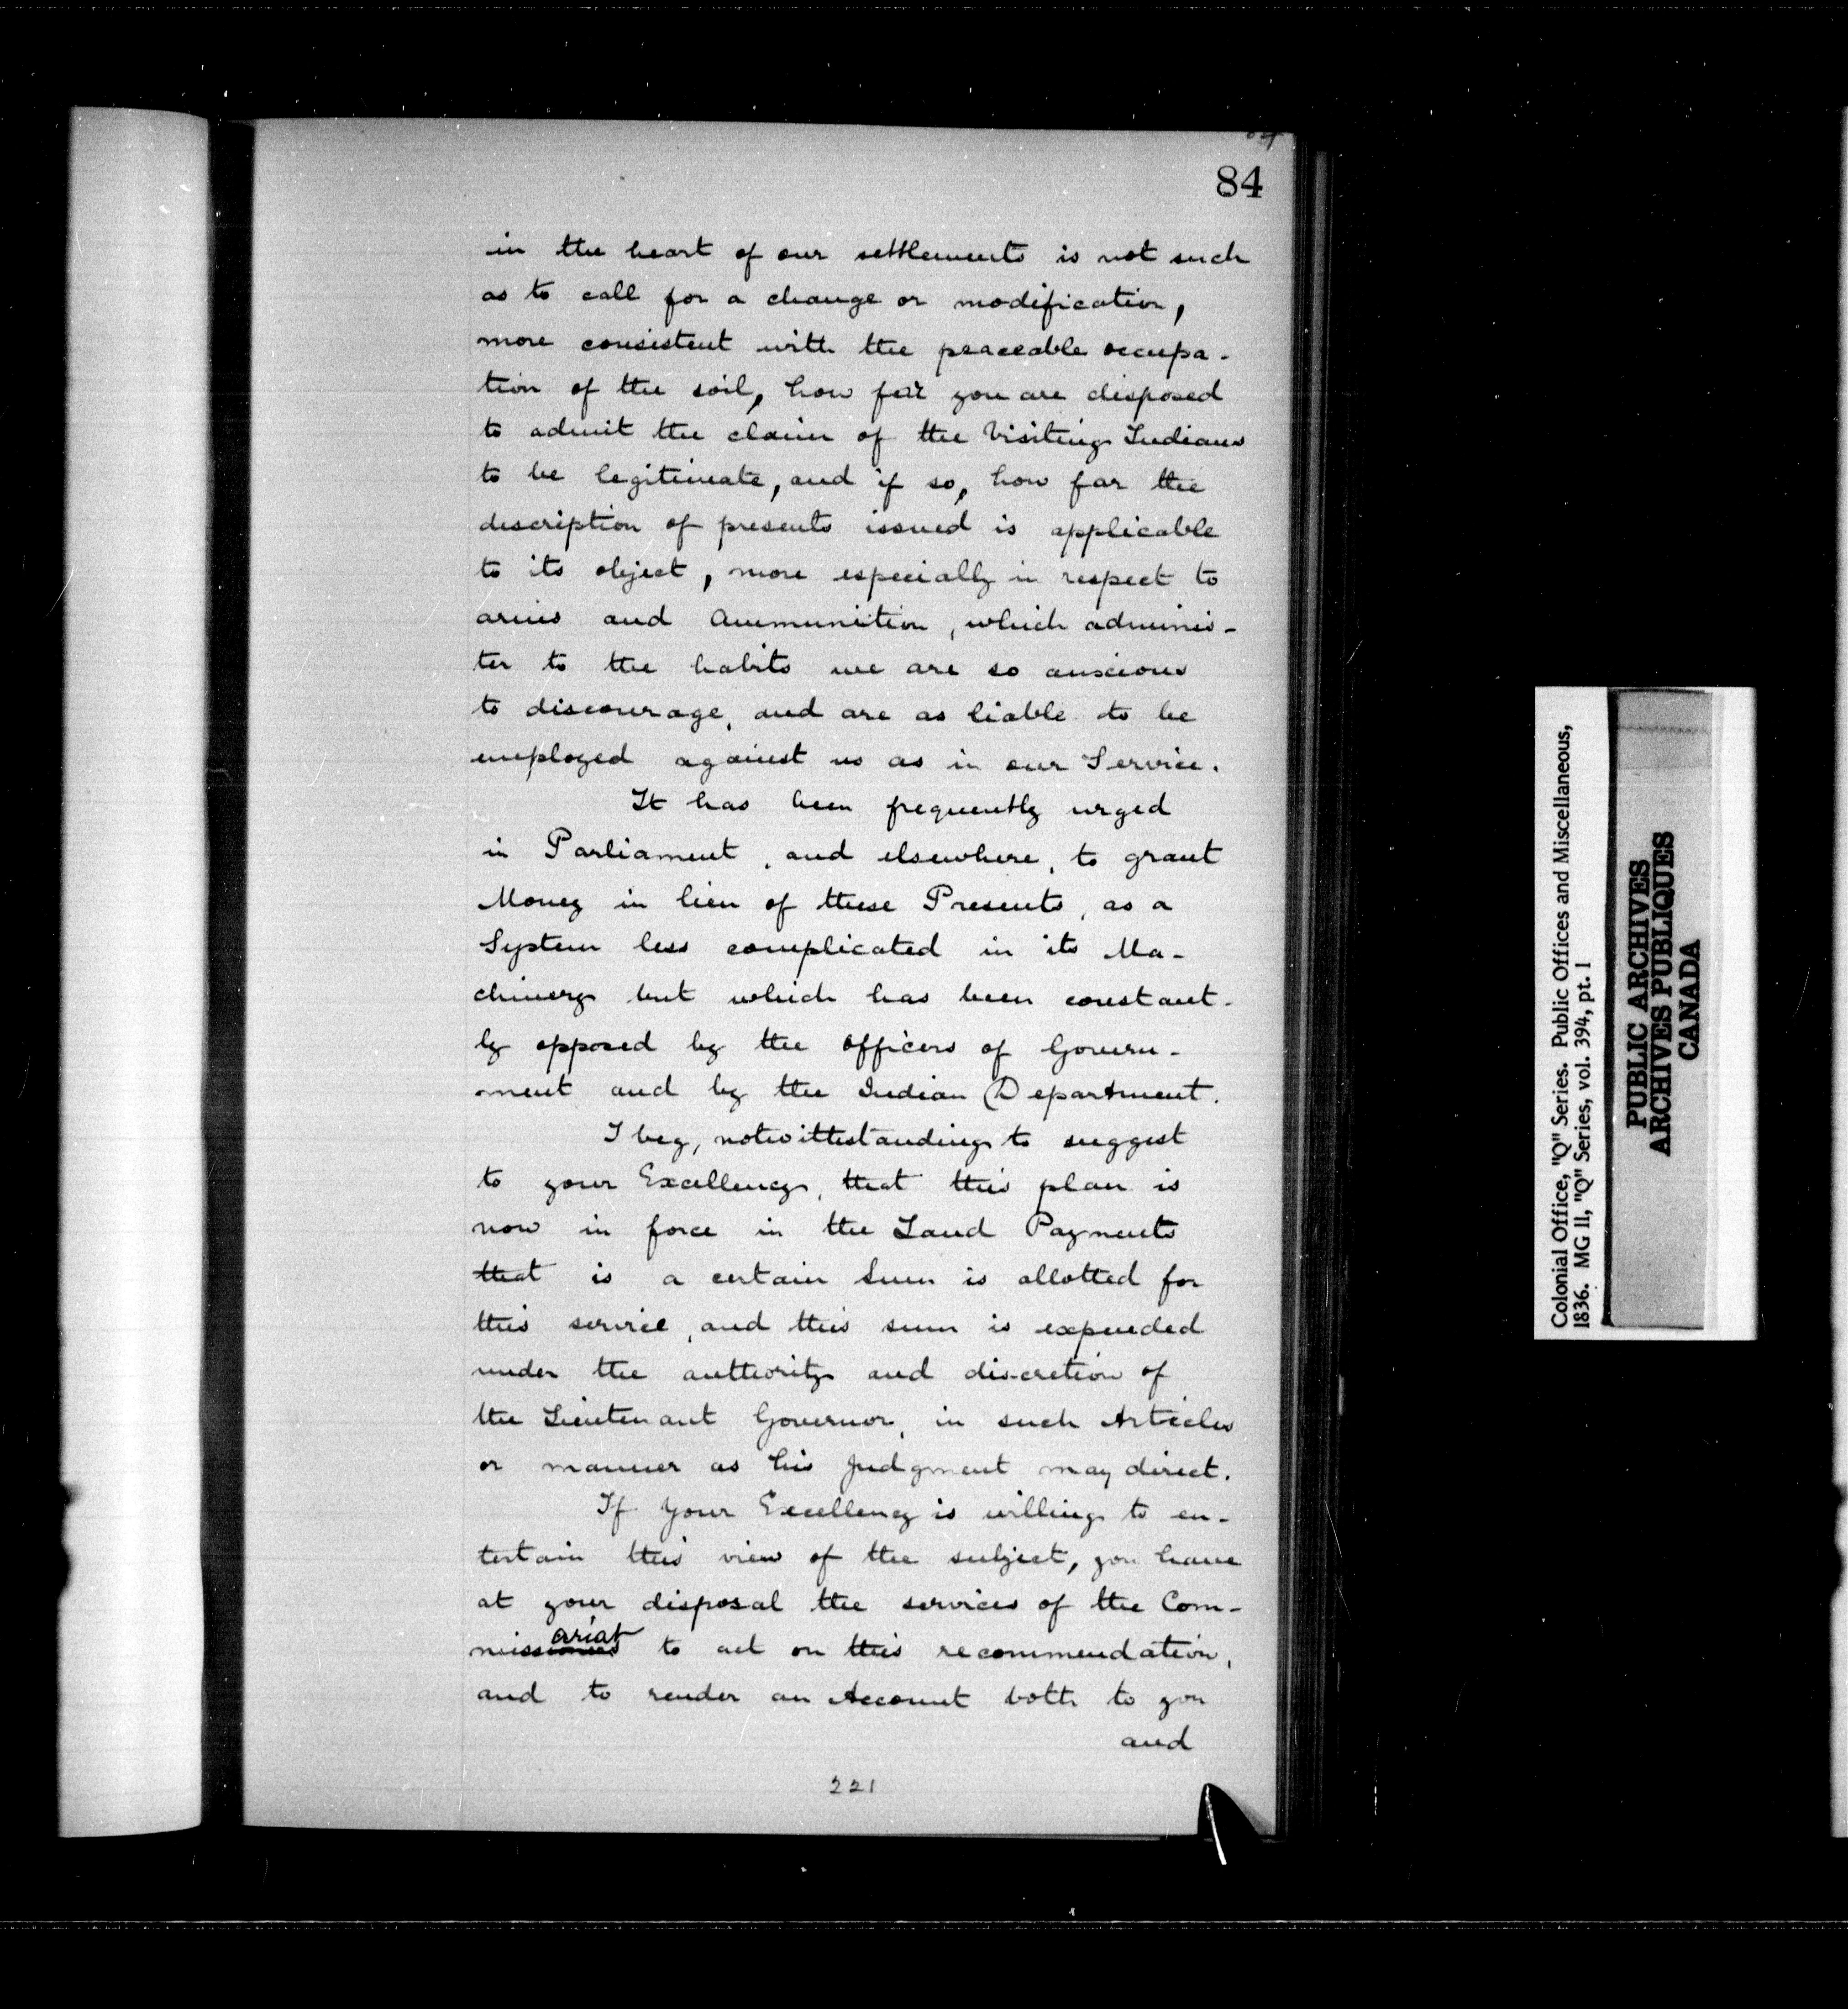 84
in the heart of our settlements is not such
as to call for a change or modification,
more consistent with the peaceable occupa-
tion of the soil, how far you are disposed
to admit the claim of the Visiting Indians
to be legitimate, and if so, how far the
description of presents issued is applicable
to its object, more especially in respect to
arms and Ammunition, which adminis-
ter to the habits we are so anxious
to discourage, and are as liable to be
employed against us as in our Service.
It has been frequently urged
in Parliament, and elsewhere, to grant
Money in lieu of these Presents, as a
System less complicated in its Ma-
chinery but which has been constant-
ly opposed by the Officers of Govern-
ment and by the Indian Department.
I beg, notwithstanding to suggest
to your Excellency, that this plan is
now in force in the Land Payments
that is a certain Sum is allotted for
this service, and this sum is expended
under the authority and discretion of
the Lieutenant Governor, in such Articles
or manner as his Judgment may direct.
If Your Excellency is willing to en-
tertain this view of the subject, you have
at your disposal the services of the Com-
missariat to act on this recommendation,
and to render an Account both to you
and
221
Colonial Office, "Q" Series. Public Offices and Miscellaneous,
1836. MG 11, "Q" Series, vol. 394, pt. 1
PUBLIC ARCHIVES
ARCHIVES PUBLIQUES
CANADA